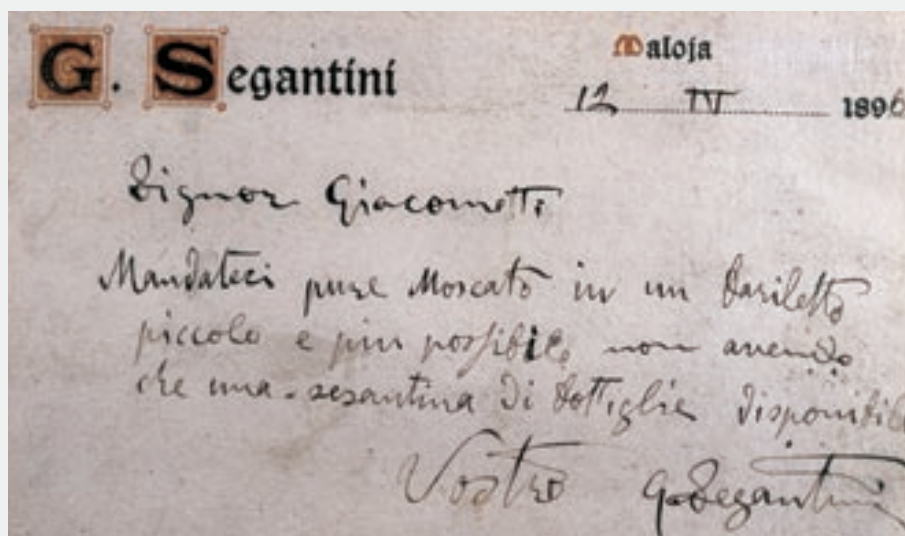 G. Segantini
Maloja
12 IV 1896
Signor Giacometti
Mandateci pure Moscato in un bariletto
piccolo e piu possibile non avendo
che una sesantina di bottiglie disponibili
Vostro G. Segantini